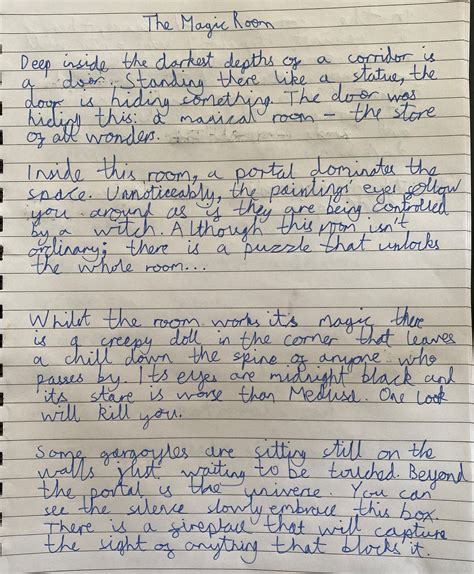 The Magic Room
Deep inside the darkest depths of a corridor is
a door. Standing there like a statue, the
door is hiding something. The door was
hiding this: a magical room – the store
of all wonders.
Inside this room, a portal dominates the
space. Unnoticeably, the paintings' eyes follow
you around as if they are being controlled
by a witch. Although this room isn't
ordinary; there is a puzzle that unlocks
the whole room...
Whilst the room works it's magic, there
is a creepy doll in the corner that leaves
a chill down the spine of anyone who
passes by. Its eyes are midnight black and
its stare is worse than Medusa. One look
will kill you.
Some gargoyles are sitting still on the
walls just waiting to be touched. Beyond
the portal is the universe. You can
see the silence slowly embrace this box.
There is a fireplace that will capture
the sight of anything that blocks it.